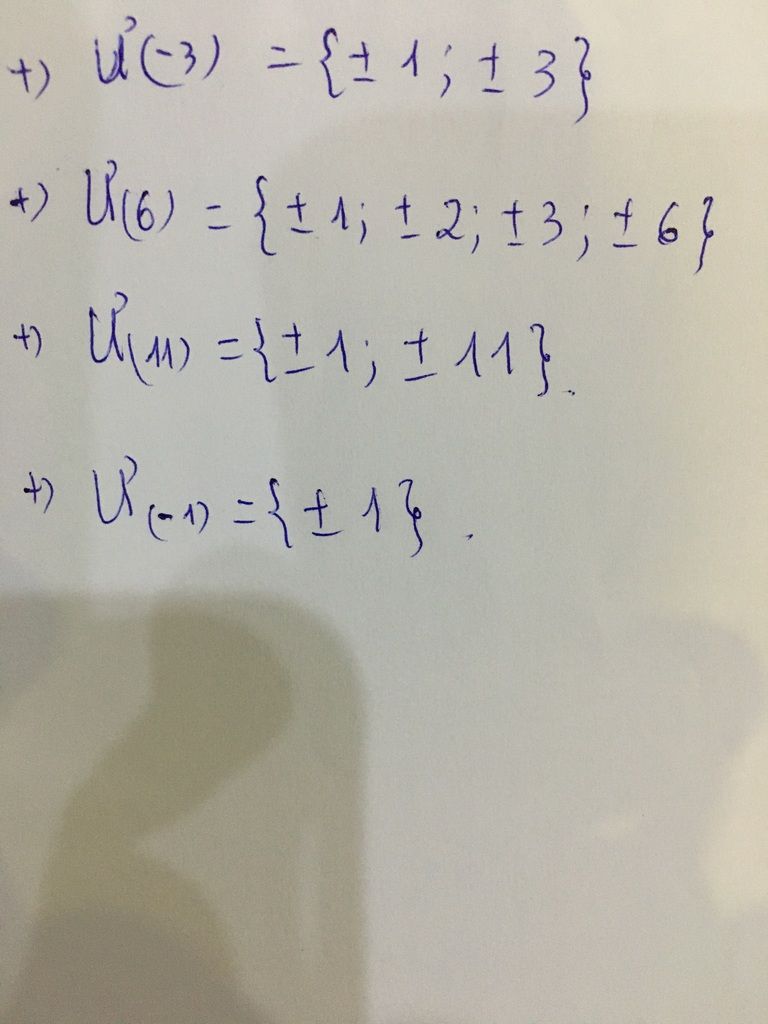 +) Ư(-3) = {± 1; ± 3}
+) Ư(6) = {± 1; ± 2; ± 3; ± 6}
+) Ư(11) = {± 1; ± 11}.
+) Ư(-1) = {± 1}.